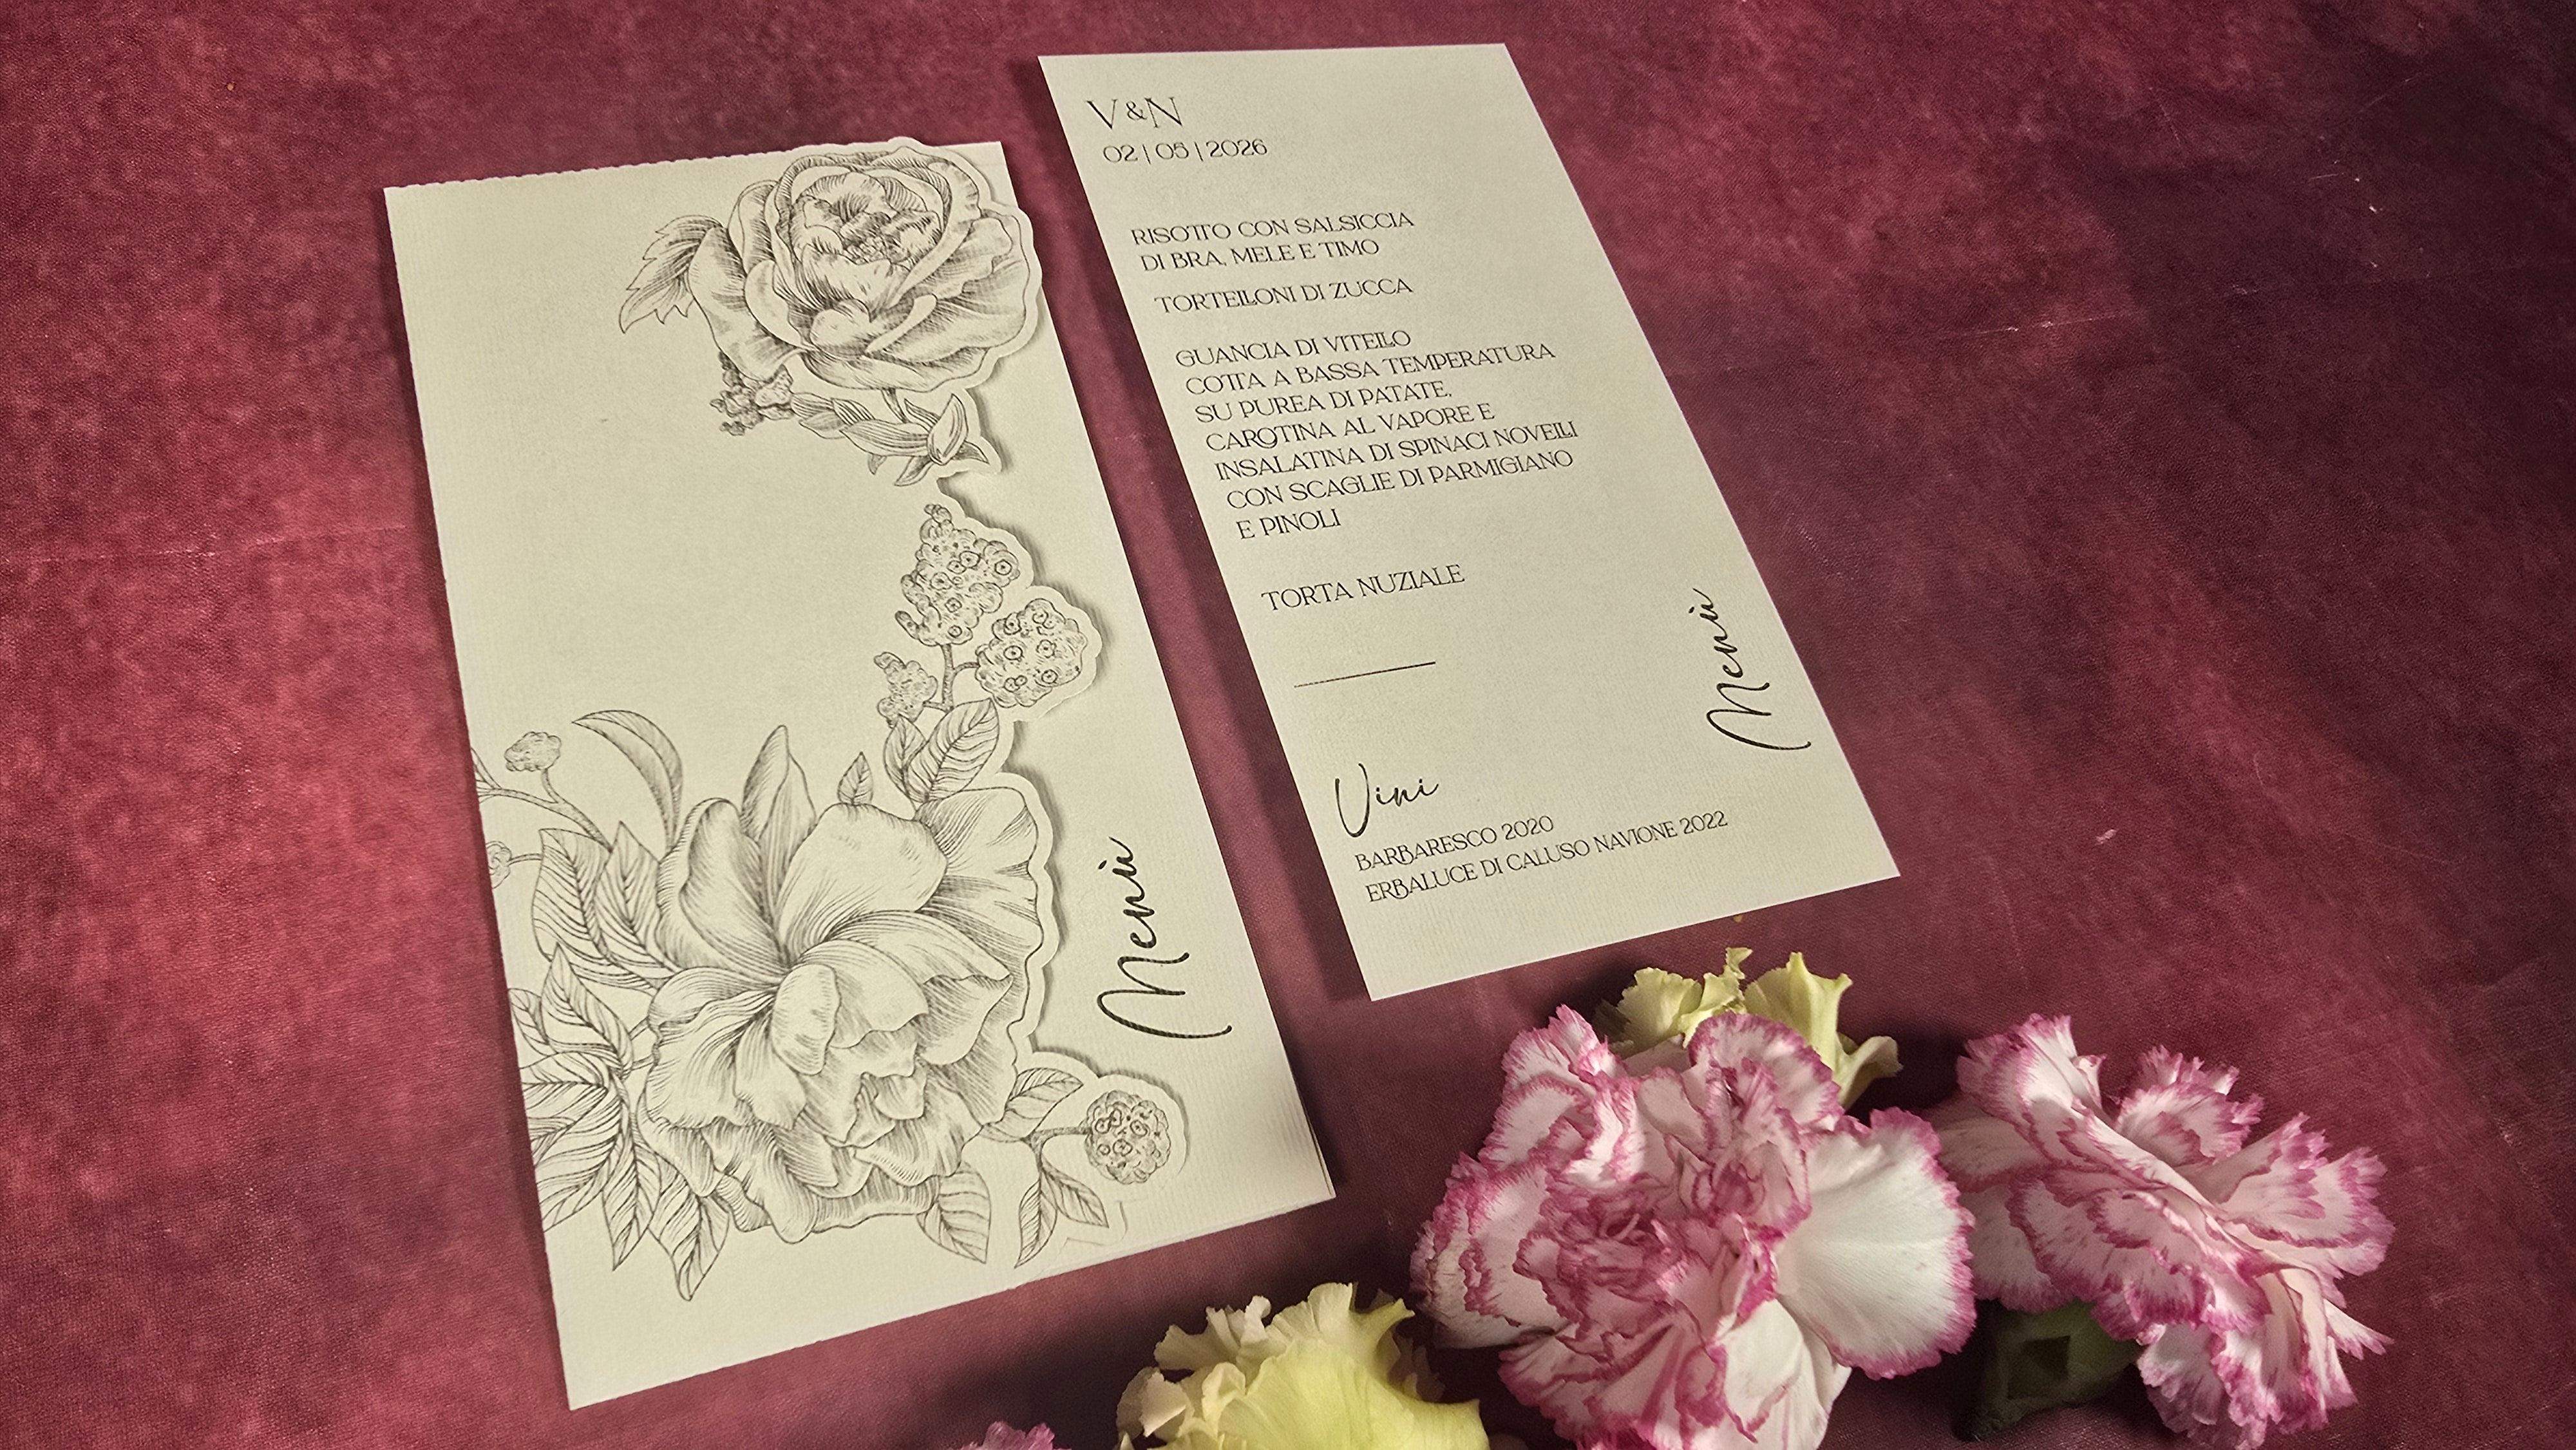 Menù
V&N
02 | 05 | 2026
RISOTTO CON SALSICCIA
DI BRA, MELE E TIMO
TORTELLONI DI ZUCCA
GUANCIA DI VITELLO
COTTA A BASSA TEMPERATURA
SU PUREA DI PATATE,
CAROTINA AL VAPORE E
INSALATINA DI SPINACI NOVELLI
CON SCAGLIE DI PARMIGIANO
E PINOLI
TORTA NUZIALE
Menù
Vini
BARBARESCO 2020
ERBALUCE DI CALUSO NAVIONE 2022